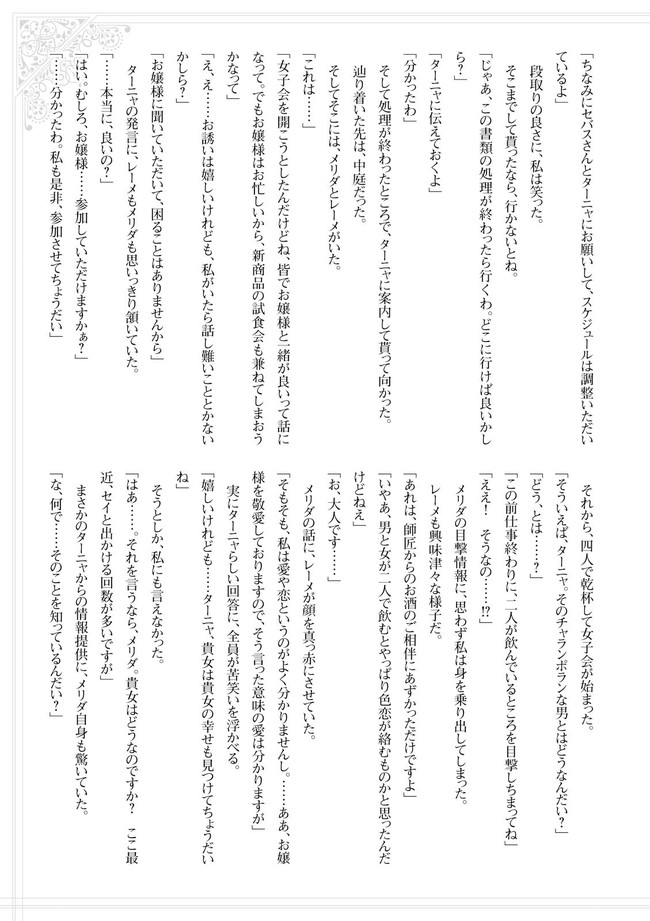 「ちなみにセバスさんとターニャにお願いして、スケジュールは調整いただい
ているよ」
段取りの良さに、私は笑った。
そこまでして貰ったなら、行かないとね。
「じゃあ、この書類の処理が終わったら行くわ。どこに行けば良いかし
ら？」
「ターニャに伝えておくよ」
「分かったわ」
そして処理が終わったところで、ターニャに案内して貰って向かった。
辿り着いた先は、中庭だった。
そしてそこには、メリダとレーメがいた。
「これは……」
「女子会を開こうとしたんだけどね、皆でお嬢様と一緒が良いって話に
なって。でもお嬢様はお忙しいから、新商品の試食会も兼ねてしまおう
かなって」
「え、え……お誘いは嬉しいけれども、私がいたら話し難いこととかない
かしら？」
「お嬢様に聞いていただいて、困ることはありませんから」
ターニャの発言に、レーメもメリダも思いっきり頷いていた。
「……本当に、良いの？」
「はい。むしろ、お嬢様……参加していただけますかぁ？」
「……分かったわ。私も是非、参加させてちょうだい」
それから、四人で乾杯して女子会が始まった。
「そういえば、ターニャ。そのチャランポランな男とはどうなんだい？」
「どう、とは……？」
「この前仕事終わりに、二人が飲んでいるところを目撃しちまってね」
「ええ！　そうなの……!?」
メリダの目撃情報に、思わず私は身を乗り出してしまった。
レーメも興味津々な様子だ。
「あれは、師匠からのお酒のご相伴にあずかっただけですよ」
「いやぁ、男と女が二人で飲むとやっぱり色恋が絡むものかと思ったんだ
けどねえ」
「お、大人です……」
メリダの話に、レーメが顔を真っ赤にさせていた。
「そもそも、私は愛や恋というのがよく分かりませんし。……ああ、お嬢
様を敬愛しておりますので、そう言った意味の愛は分かりますが」
実にターニャらしい回答に、全員が苦笑いを浮かべる。
「嬉しいけれども……ターニャ、貴女は貴女の幸せも見つけてちょうだい
ね」
そうとしか、私にも言えなかった。
「はあ……。それを言うなら、メリダ。貴女はどうなのですか？　ここ最
近、セイと出かける回数が多いですが」
まさかのターニャからの情報提供に、メリダ自身も驚いていた。
「な、何で……そのことを知っているんだい？」